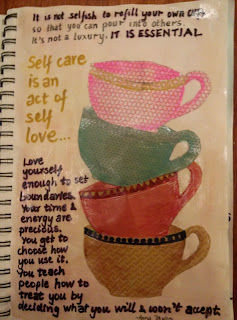 It is not selfish to refill your own cup
so that you can pour into others.
It's not a luxury. IT IS ESSENTIAL
Self care
is an
act of
self
love...
Love
yourself
enough to set
boundaries.
Your time &
energy are
precious.
You get to
choose how
you use it.
You teach
people how to
treat you by
deciding what you will & won't accept.